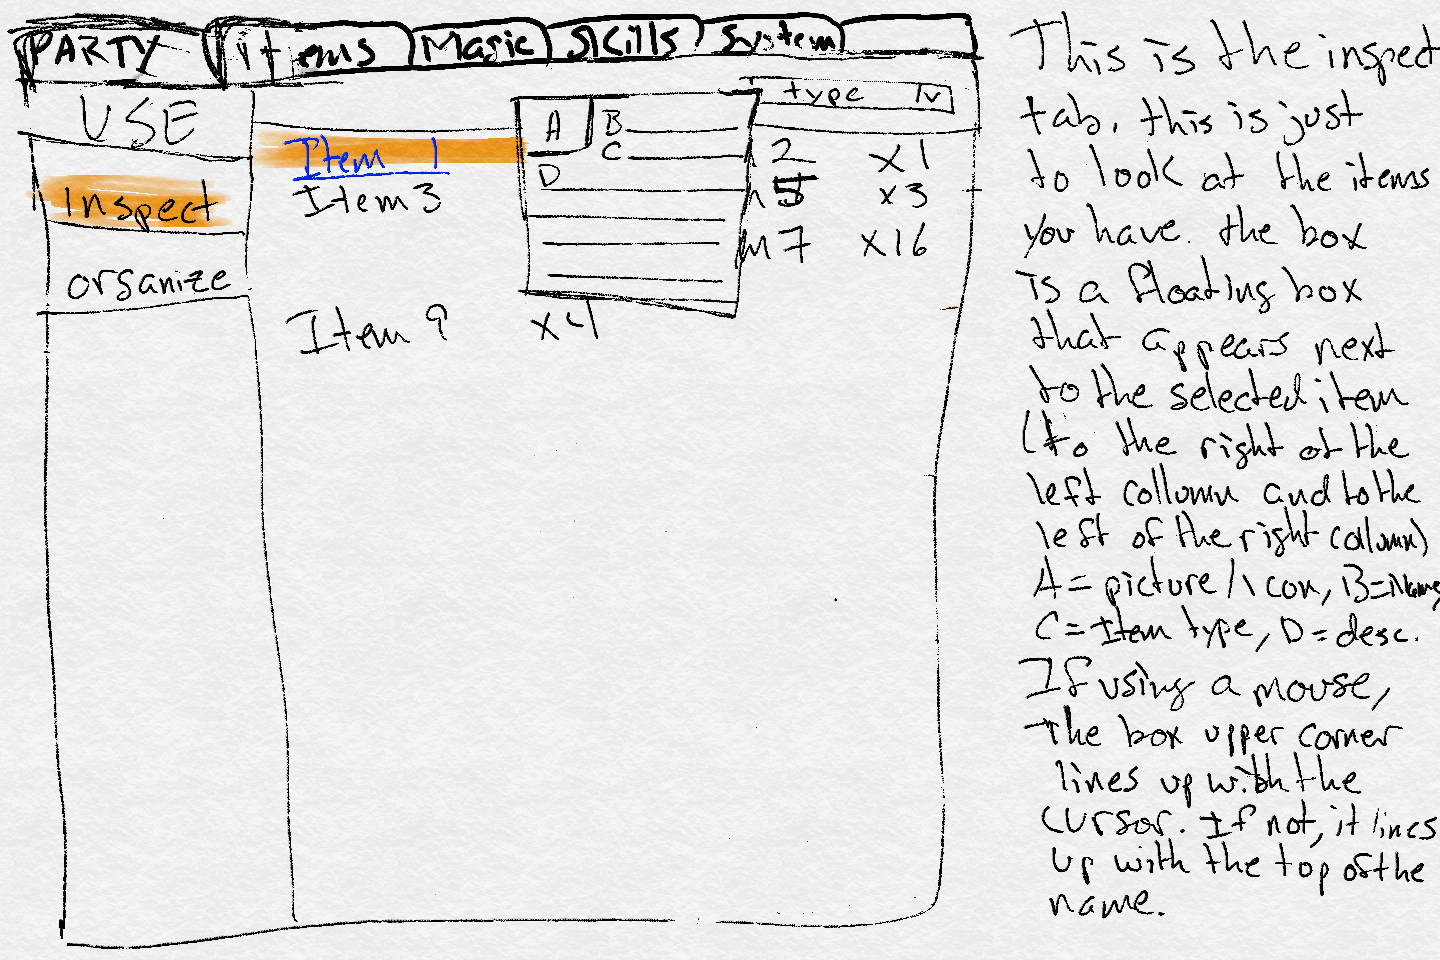 PARTY items Magic SKills System
USE
inspect
organize
type
A B
C
D
Item 1
2 x1
Item 3
5 x3
m 7 x16
Item 9 x4
This is the inspect
tab, this is just
to look at the items
you have. the box
is a floating box
that appears next
to the selected item
(to the right of the
left collumn and to the
left of the right collumn)
A = picture/icon, B=Name,
C = Item type, D = desc.
If using a mouse,
the box upper corner
lines up with the
cursor. If not, it lines
up with the top of the
name.